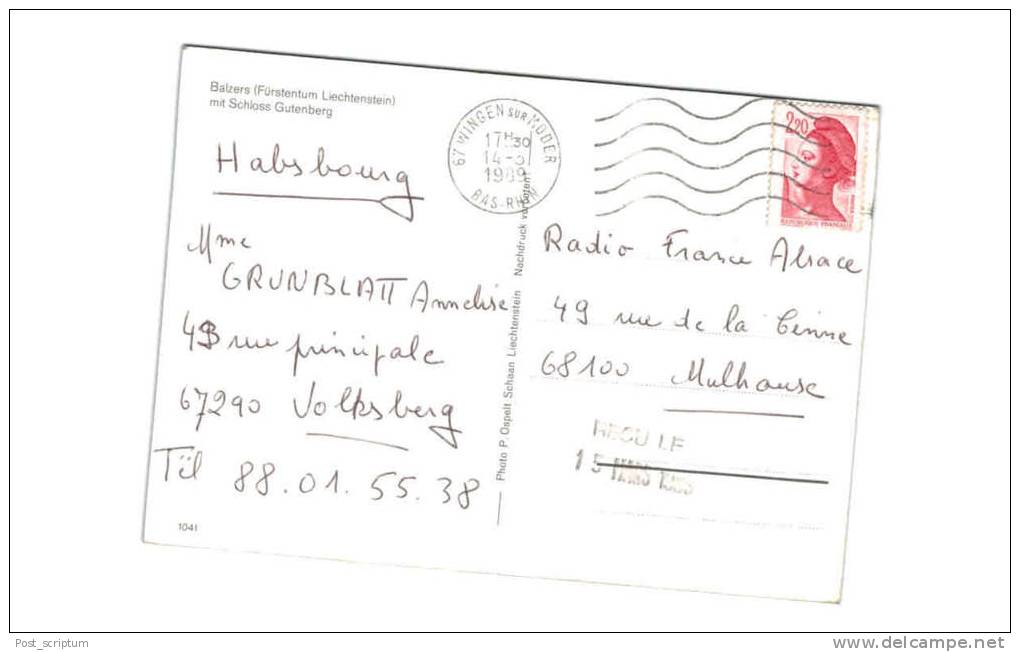 Balzers (Fürstentum Liechtenstein)
mit Schloss Gutenberg
Habsbourg
Mme
GRUNBLATT Annelise
49 rue principale
67290 Volksberg
Tél 88.01.55.38
1041
Photo P. Ospelt Schaan Liechtenstein Nachdruck verboten
67 WINGEN SUR MODER
17H30
14-3
1989
BAS-RHIN
2,20
REPUBLIQUE FRANÇAISE
Radio France Alsace
49 rue de la Sinne
68100 Mulhouse
RECU LE
15 MARS
Post_scriptum
www.delcampe.net